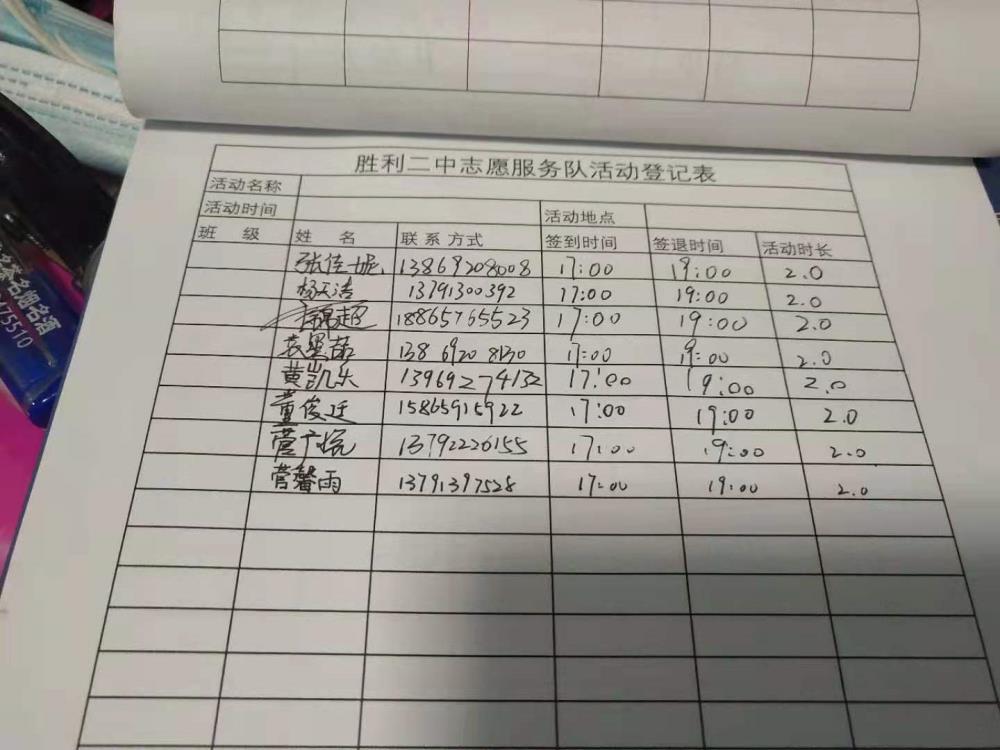 胜利二中志愿服务队活动登记表
活动名称
活动时间 活动地点
班 级 姓 名 联系方式 签到时间 签退时间 活动时长
张佳妮 13869208008 17:00 19:00 2.0
杨天浩 13791300392 17:00 19:00 2.0
超 18865765523 17:00 19:00 2.0
袁 138 6920 8130 17:00 19:00 2.0
黄凯乐 13969274132 17:00 19:00 2.0
董俊廷 15865915922 17:00 19:00 2.0
营广 13792226155 17:00 19:00 2.0
营馨雨 13791397528 17:00 19:00 2.0
名烟名酒
75510